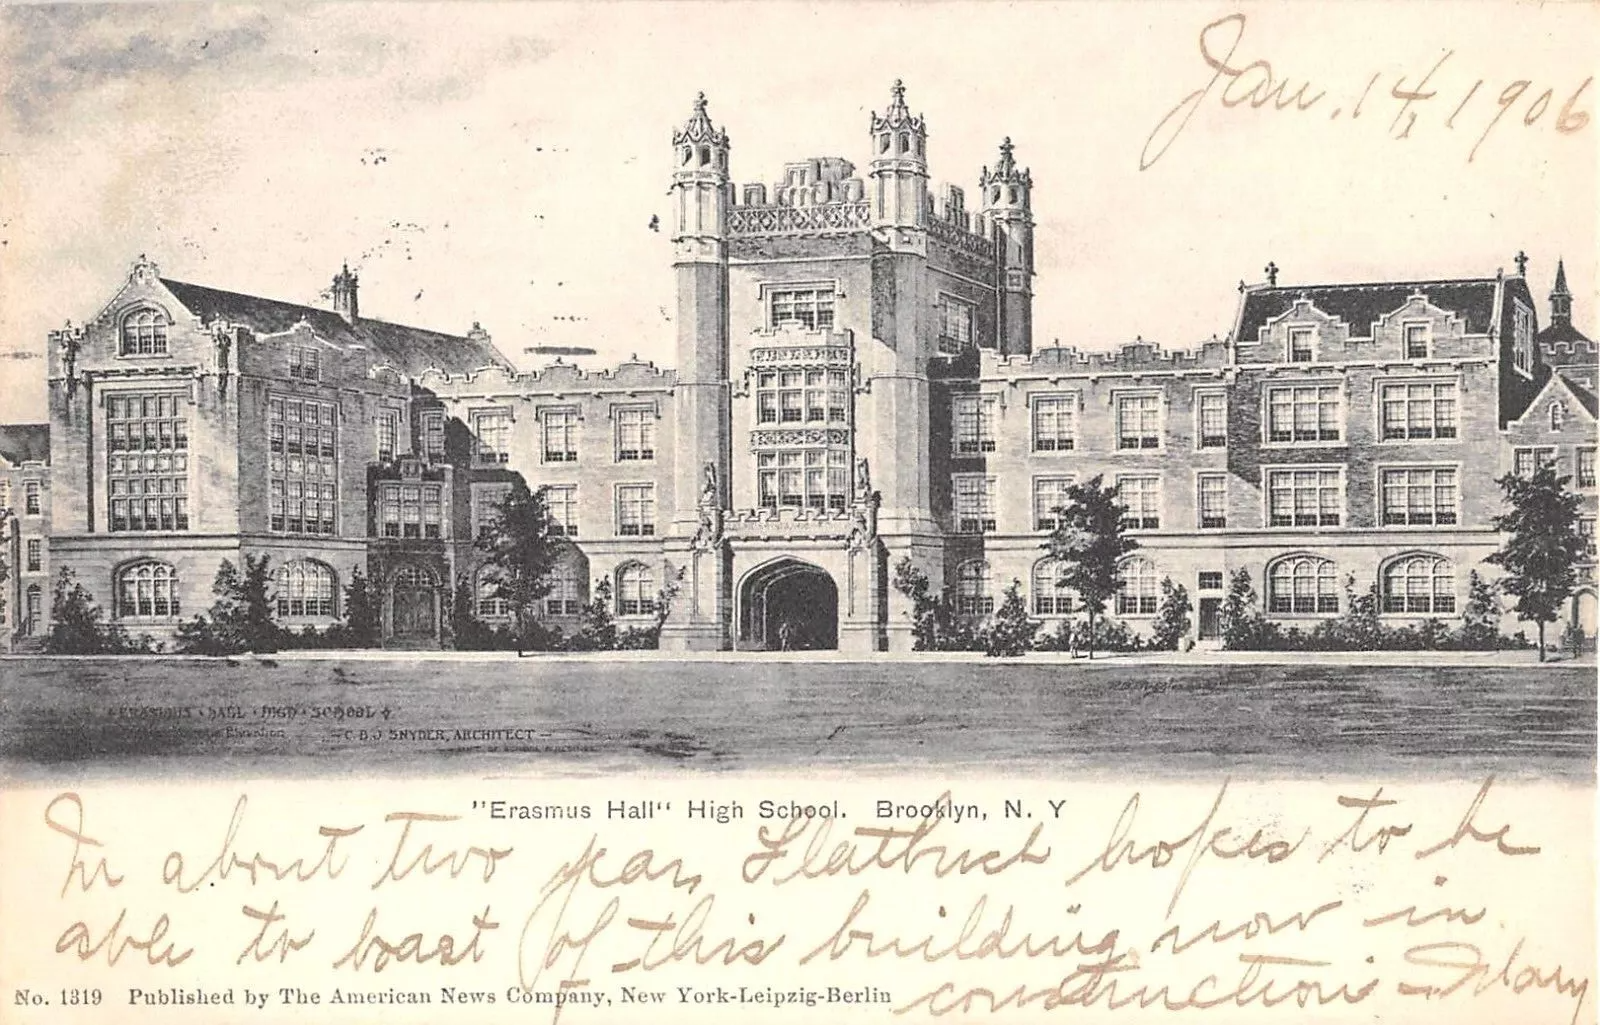 Jan. 14, 1906
ERASMUS HALL HIGH SCHOOL
Elevation — C.B.J SNYDER, ARCHITECT —
"Erasmus Hall" High School. Brooklyn, N. Y
In about two years Flatbush hopes to be
able to boast of this building now in
construction — Mary
No. 1319 Published by The American News Company, New York-Leipzig-Berlin